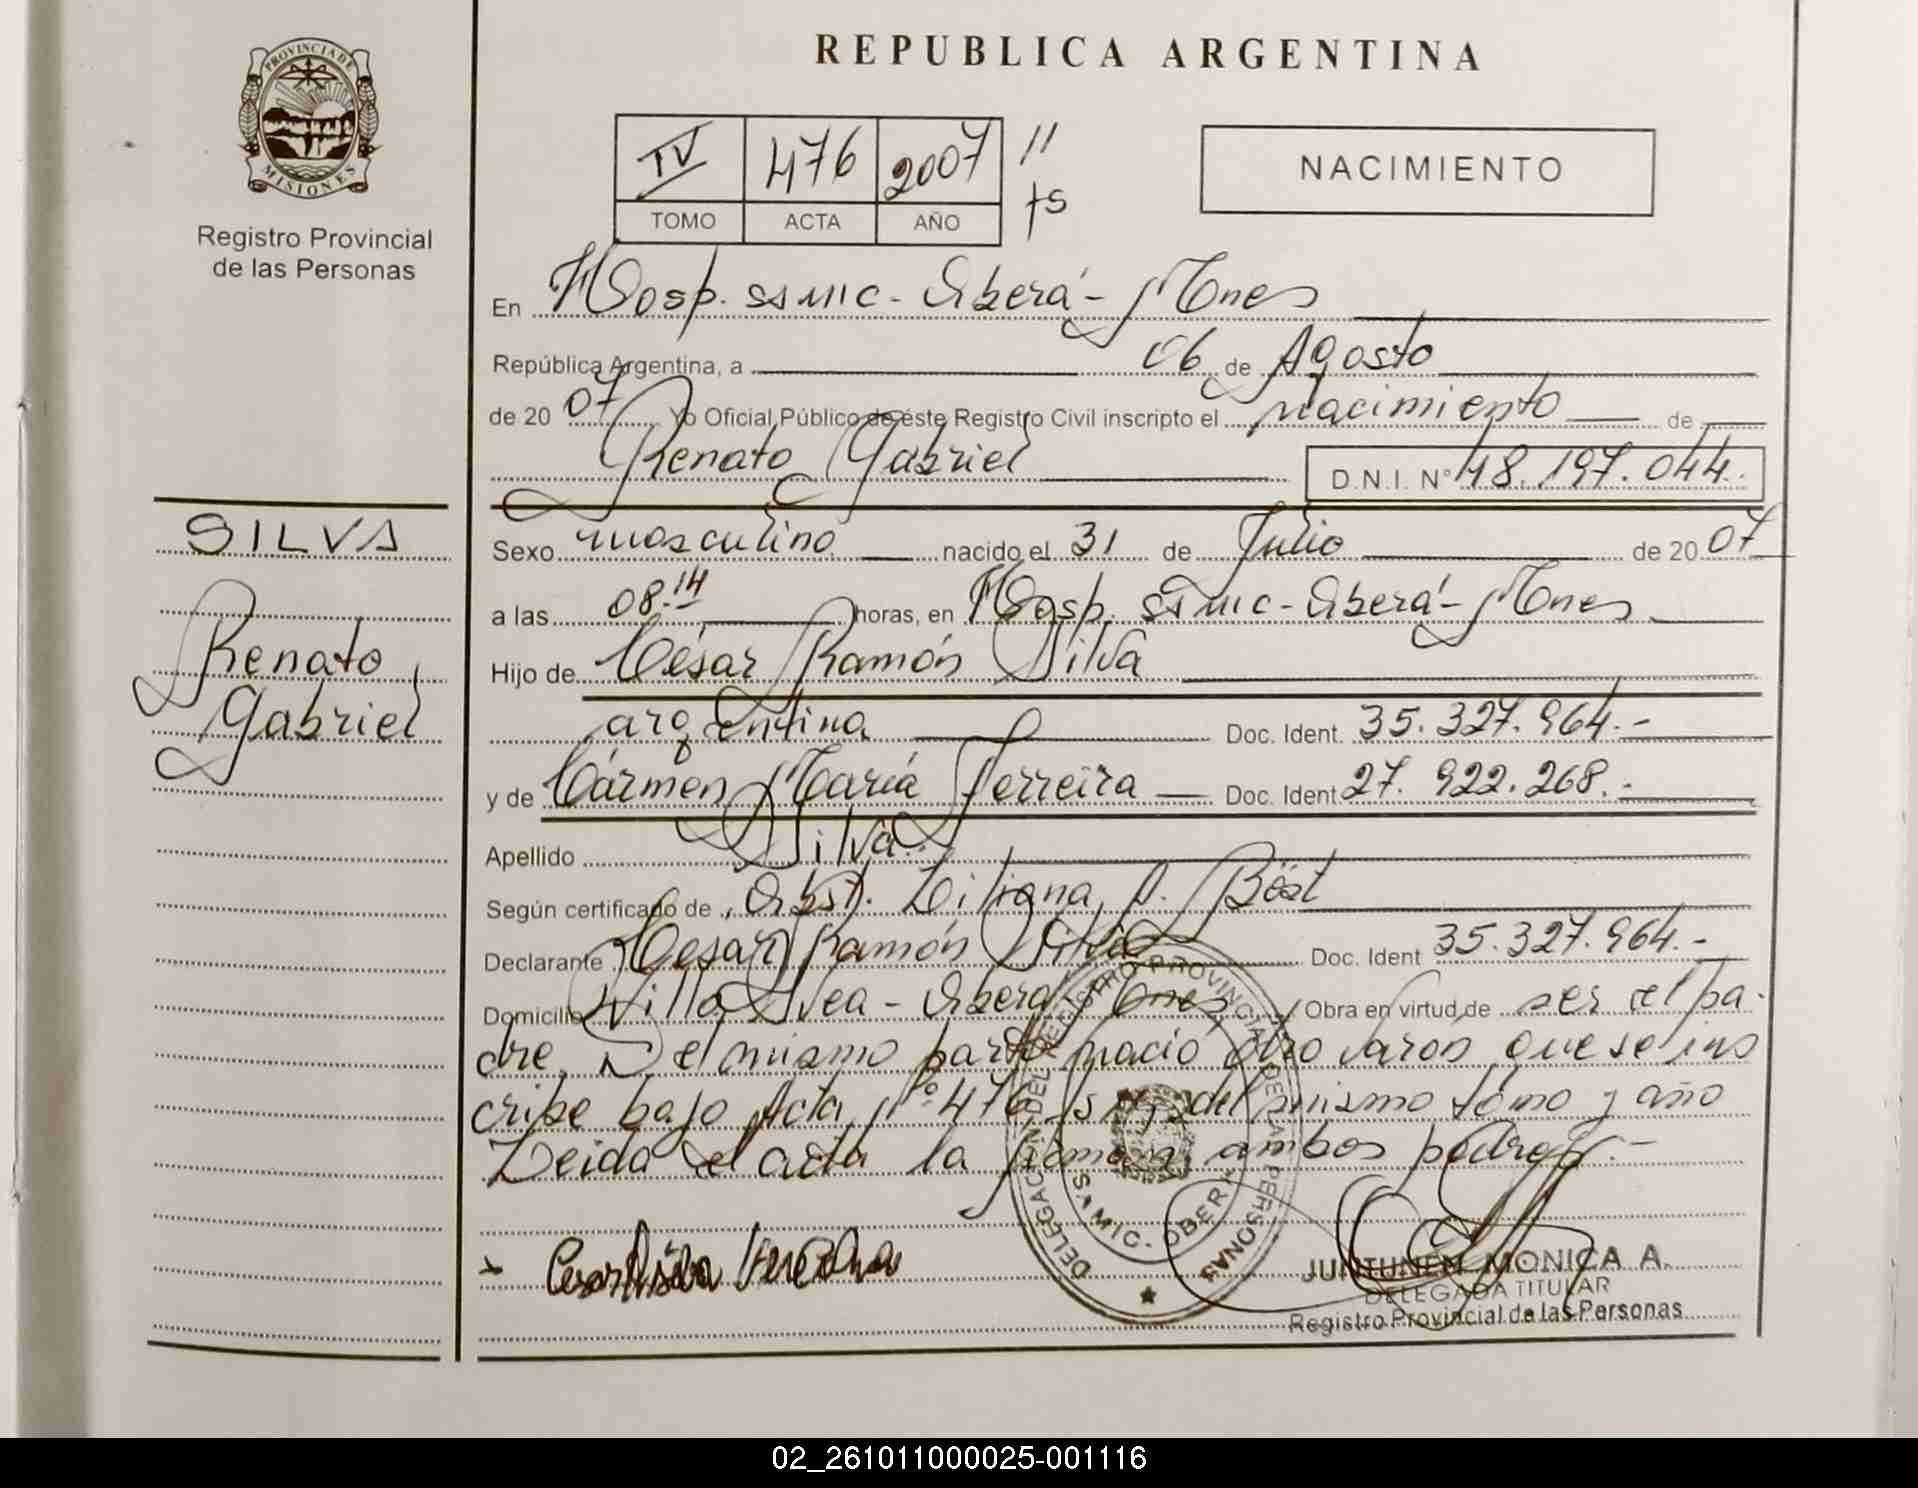 PROVINCIA DE
MISIONES
Registro Provincial
de las Personas
REPUBLICA ARGENTINA
IV 476 2007 //
TOMO ACTA AÑO ts
NACIMIENTO
En Hosp. SAMIC - Oberá - Mnes
República Argentina, a 06 de Agosto
de 20 07 Yo Oficial Público de éste Registro Civil inscripto el nacimiento de
Renato Gabriel D.N.I. N° 48.197.044.
SILVA
Renato
Gabriel
Sexo masculino nacido el 31 de Julio de 20 07
a las 08.14 horas, en Hosp. SAMIC - Oberá - Mnes
Hijo de César Ramón Silva
argentina Doc. Ident. 35.327.964.-
y de Cármen María Ferreira Doc. Ident. 27.922.268.-
Apellido Silva
Según certificado de Obst. Liliana
Declarante Cesar Ramón Silva Doc. Ident 35.327.964.-
Domicilio Villa - Oberá Mnes Obra en virtud de ser el pa-
dre. Del mismo parto nació otro varón que se ins
cribe bajo Acta Nº 476 del mismo tomo y año
Leida el acta la firman ambos padres.-
DELEGACIÓN DEL REGISTRO PROVINCIAL DE LAS PERSONAS
SAMIC - OBERA
JUNTUNEN MONICA A.
DELEGADA TITULAR
Registro Provincial de las Personas
02_261011000025-001116